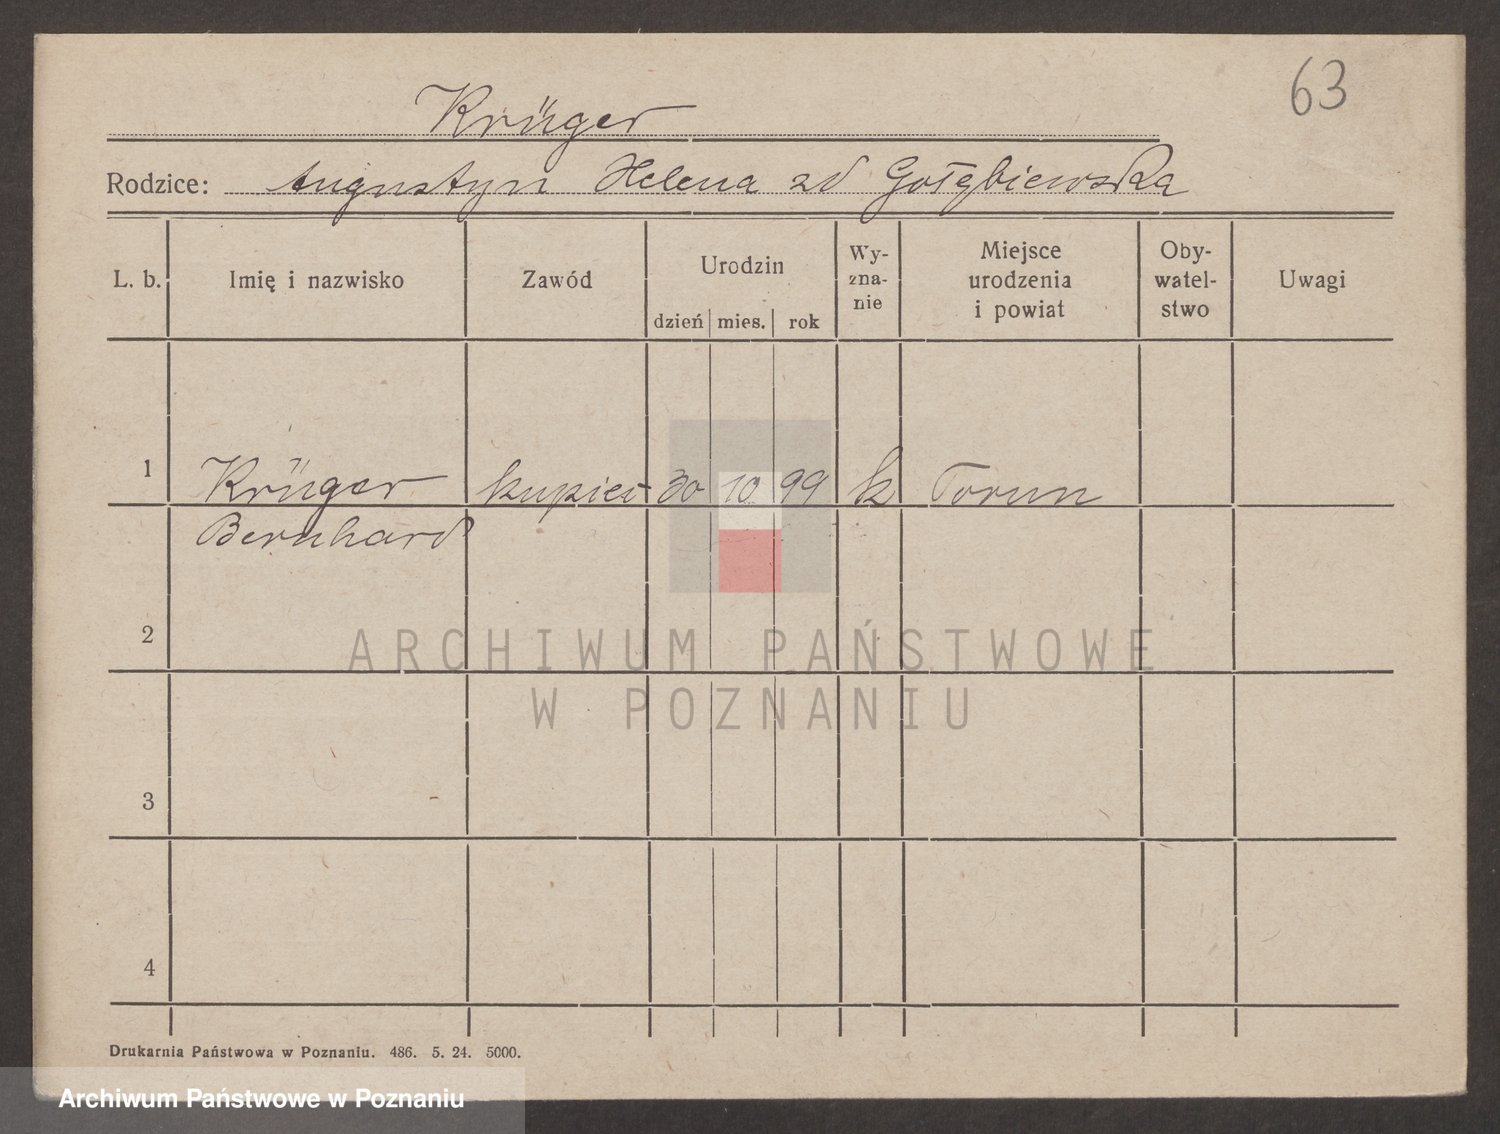 63
Krüger
Rodzice: Augustyn Helena zd Gołębiewska
L. b. Imię i nazwisko Zawód Urodzin dzień mies. rok Wy-zna-nie Miejsce urodzenia i powiat Oby-watel-stwo Uwagi
1 Krüger kupiec 30 10 99 k Torun
Bernhard
2
ARCHIWUM PAŃSTWOWE
W POZNANIU
3
4
Drukarnia Państwowa w Poznaniu. 486. 5. 24. 5000.
Archiwum Państwowe w Poznaniu